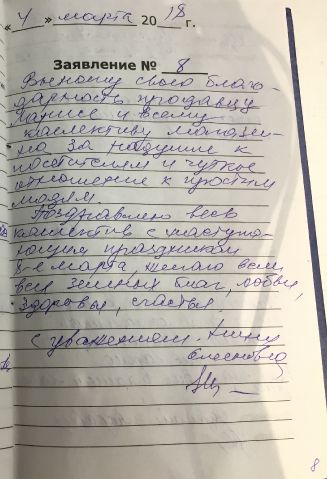 « 4 » марта 20 18 г.
Заявление № 8
Выношу свою благо-
дарность продавцу
Ларисе и всему
коллективу магази-
на за
посетителям и чуткое
отношение к простым
людям.
Поздравляю весь
коллектив с наступа-
ющим праздником
8-е марта, желаю всем
всех земных благ, любви,
здоровья, счастья.
с уважением.
8